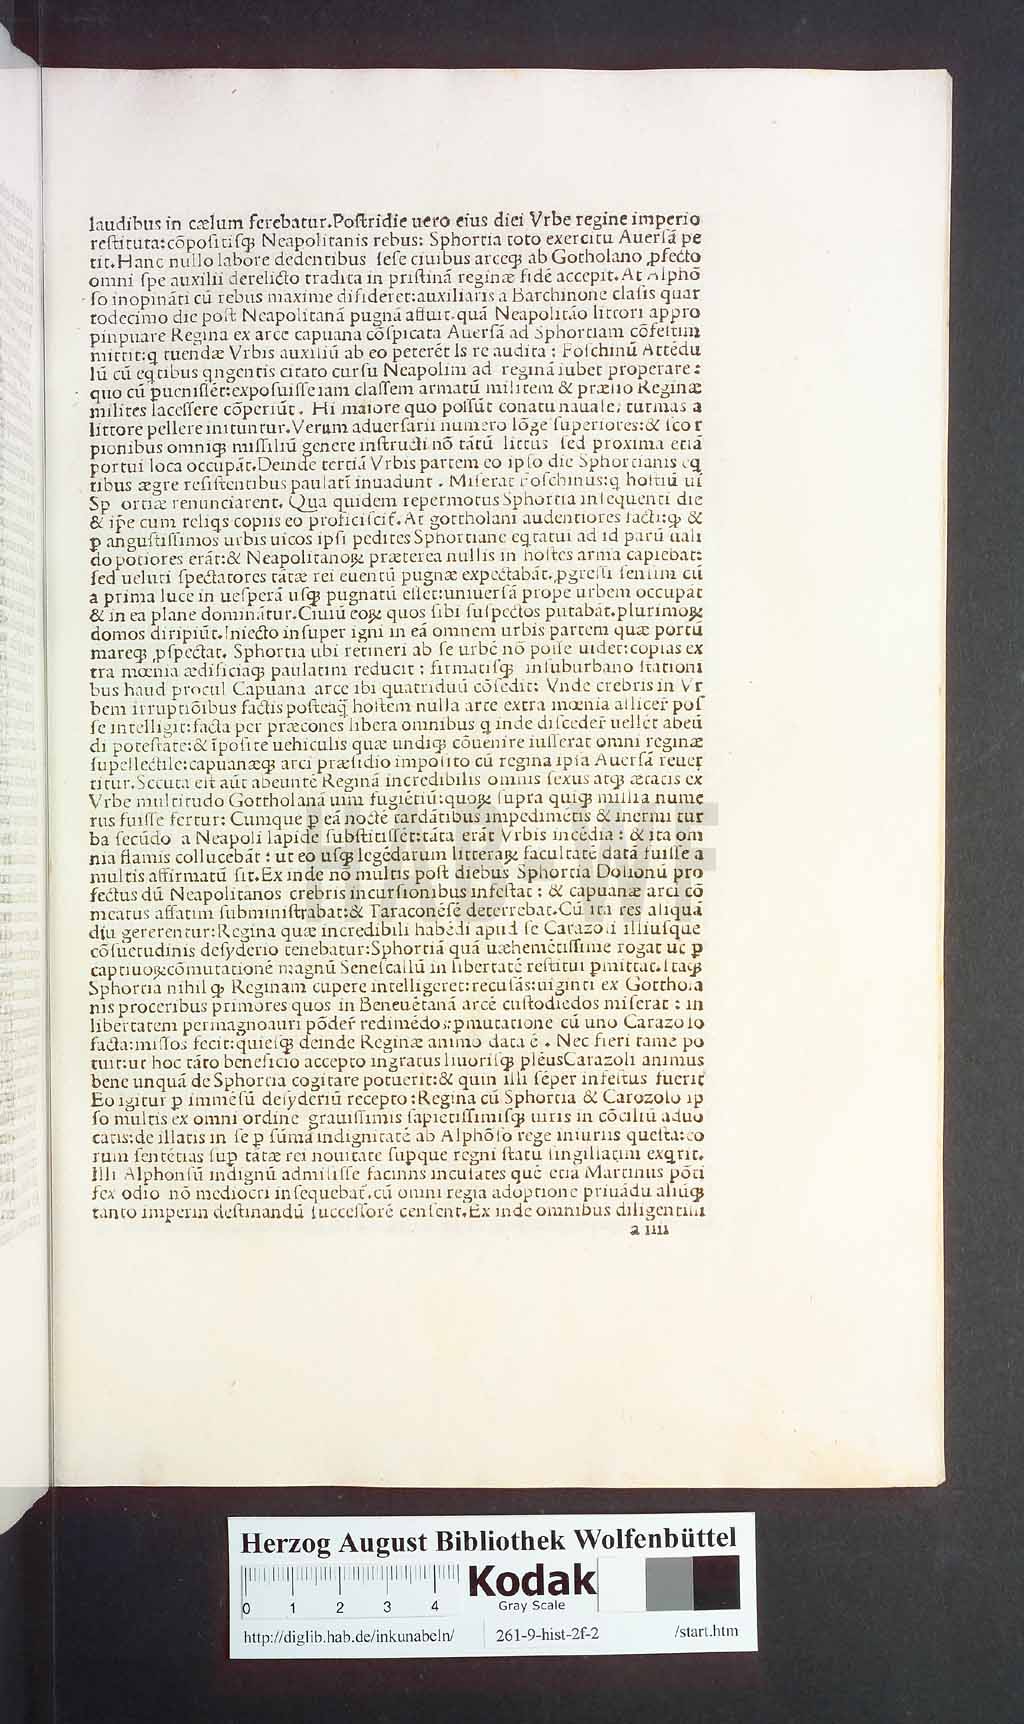 laudibus in cælum ferebatur.Poſtridie uero eius diei Vrbe regine imperio
reſtituta:cõpoſitiſqꝫ Neapolitanis rebus: Sphortia toto exercitu Auerſã pe
tit.Hanc nullo labore dedentibus ſeſe ciuibus arceqꝫ ab Gotholano ꝓfecto
omni ſpe auxilii derelicto tradita in priſtinã reginæ fidé accepit.At Alphõ
ſo inopinãti cũ rebus maxime diffideret:auxiliaris a Barchinone claſſis quar
todecimo die poſt Neapolitanã pugnã affuit.quã Neapolitão littori appro
pinpuare Regina ex arce capuana cõſpicata Auerſã ad Sphortiam cõfeſtim
mittit:q tuendæ Vrbis auxiliũ ab eo peterét Is re audita : Foſchinũ Attédu
lũ cũ eqtibus qngentis citato curſu Neapolim ad reginã iubet properare:
quo cũ ꝑueniſſet:expoſuiſſe iam claſſem armatũ militem & prælio Reginæ
milites laceſſere cõperiũt. Hi maiore quo poſſũt conatu nauales turmas a
littore pellere inituntur.Verum aduerſarii numero lõge ſuperiores:& ſcor
pionibus omniqꝫ miſſiliũ genere inſtructi nõ tãtũ littus ſed proxima etiã
portui loca occupãt.Deinde tertiã Vrbis partem eo ipſo die Sphortianis eq
tibus ægre reſiſtentibus paulatĩ inuadunt . Miſerat Foſchinus:q hoſtiũ uĩ
Sp ortiæ renunciarent. Qua quidem re permotus Sphortia inſequenti die
& ip̃e cum reliqs copiis eo proficiſcit̃. At gottholani audentiores facti:qꝫ &
ꝑ anguſtiſſimos urbis uicos ipſi pedites Sphortiane eqtatui ad id parũ uali
do potiores erãt:& Neapolitanoꝝ præterea nullis in hoſtes arma capiebat:
ſed ueluti ſpectatores tãtæ rei euentũ pugnæ expectabãt.ꝓgreſſi ſenſim cũ
a prima luce in ueſperã uſqꝫ pugnatũ eſſet:uniuerſã prope urbem occupãt
& in ea plane dominãtur.Ciuiũ eoꝝ quos ſibi ſuſpectos putabãt.plurimoꝝ
domos diripiũt.Iniecto inſuper igni in eã omnem urbis partem quæ portũ
mareqꝫ ꝓſpectat. Sphortia ubi retineri ab ſe urbé nõ poſſe uidet:copias ex
tra mœnia ædificiaqꝫ paulatim reducit : firmatiſqꝫ inſuburbano ſtationi
bus haud procul Capuana arce ibi quatriduũ cõſedit: Vnde crebris in Vr
bem irruptiõibus factis poſteaq̃ hoſtem nulla arte extra mœnia allicer̃ poſ
ſe intelligit:facta per præcones libera omnibus q inde diſceder̃ uellét abeũ
di poteſtate:& ĩpoſite uehiculis quæ undiqꝫ cõuenire iuſſerat omni reginæ
ſupellectile:capuanæqꝫ arci præſidio impoſito cũ regina ipſa Auerſã reuer
titur.Secuta eſt aũt abeunté Reginã incredibilis omnis ſexus atqꝫ ætatis ex
Vrbe multitudo Gottholanã uim fugiétiũ:quoꝝ ſupra quiqꝫ millia nume
rus fuiſſe fertur: Cumque ꝑ eã nocté tardãtibus impedimétis & inermi tur
ba ſecũdo a Neapoli lapide ſubſtitiſſét:tãta erãt Vrbis incédia : & ita om
nia flamis collucebãt : ut eo uſqꝫ legédarum litteraꝝ facultaté datã fuiſſe a
multis affirmatũ ſit.Ex inde nõ multis poſt diebus Sphortia Dolionũ pro
fectus dũ Neapolitanos crebris incurſionibus infeſtat : & capuanæ arci cõ
meatus affatim ſubminiſtrabat:& Taraconéſé deterrebat.Cũ ita res aliquã
diu gererentur:Regina quæ incredibili habédi apud ſe Carazoli illiuſque
cõſuetudinis deſyderio tenebatur:Sphortiã quã uæhemétiſſime rogat ut ꝑ
captiuoꝝcõmutationé magnũ Seneſcallũ in libertaté reſtitui ꝑmittat.Itaqꝫ
Sphortia nihil qꝫ Reginam cupere intelligeret:recuſãs:uiginti ex Gotthola
nis proceribus primores quos in Beneuétanã arcé cuſtodiédos miſerat : in
libertatem permagnoauri põder̃ redimédos:ꝑmutatione cũ uno Carazolo
facta:miſſos fecit:quieſqꝫ deinde Reginæ animo data é . Nec fieri tamé po
tuit:ut hoc tãto beneficio accepto ingratus liuoriſqꝫ plénusCarazoli animus
bene unquã de Sphortia cogitare potuerit:& quin illi ſéper infeſtus fuerit
Eo igitur ꝑ imméſũ deſyderiũ recepto:Regina cũ Sphortia & Carozolo ip
ſo multis ex omni ordine grauiſſimis ſapiétiſſimiſqꝫ uiris in cõciliũ aduo
catis:de illatis in ſe ꝑ ſũmã indignitaté ab Alphõſo rege iniuriis queſta:eo
rum ſentétias ſuꝑ tãtæ rei nouitate ſupque regni ſtatu ſingillatim exqrit.
Illi Alphonſũ indignũ admiſiſſe facinns incuſãtes qué etiã Martinus põti
fex odio nõ mediocri inſequebat̃.cũ omni regia adoptione priuãdũ aliũqꝫ
tanto imperin deſtinandũ ſucceſſoré cenſent.Ex inde omnibus diligentiſſi
a iiii
HAB-WF
Herzog August Bibliothek Wolfenbüttel
0 1 2 3 4
Kodak
Gray Scale
http://diglib.hab.de/inkunabeln/ 261-9-hist-2f-2 /start.htm